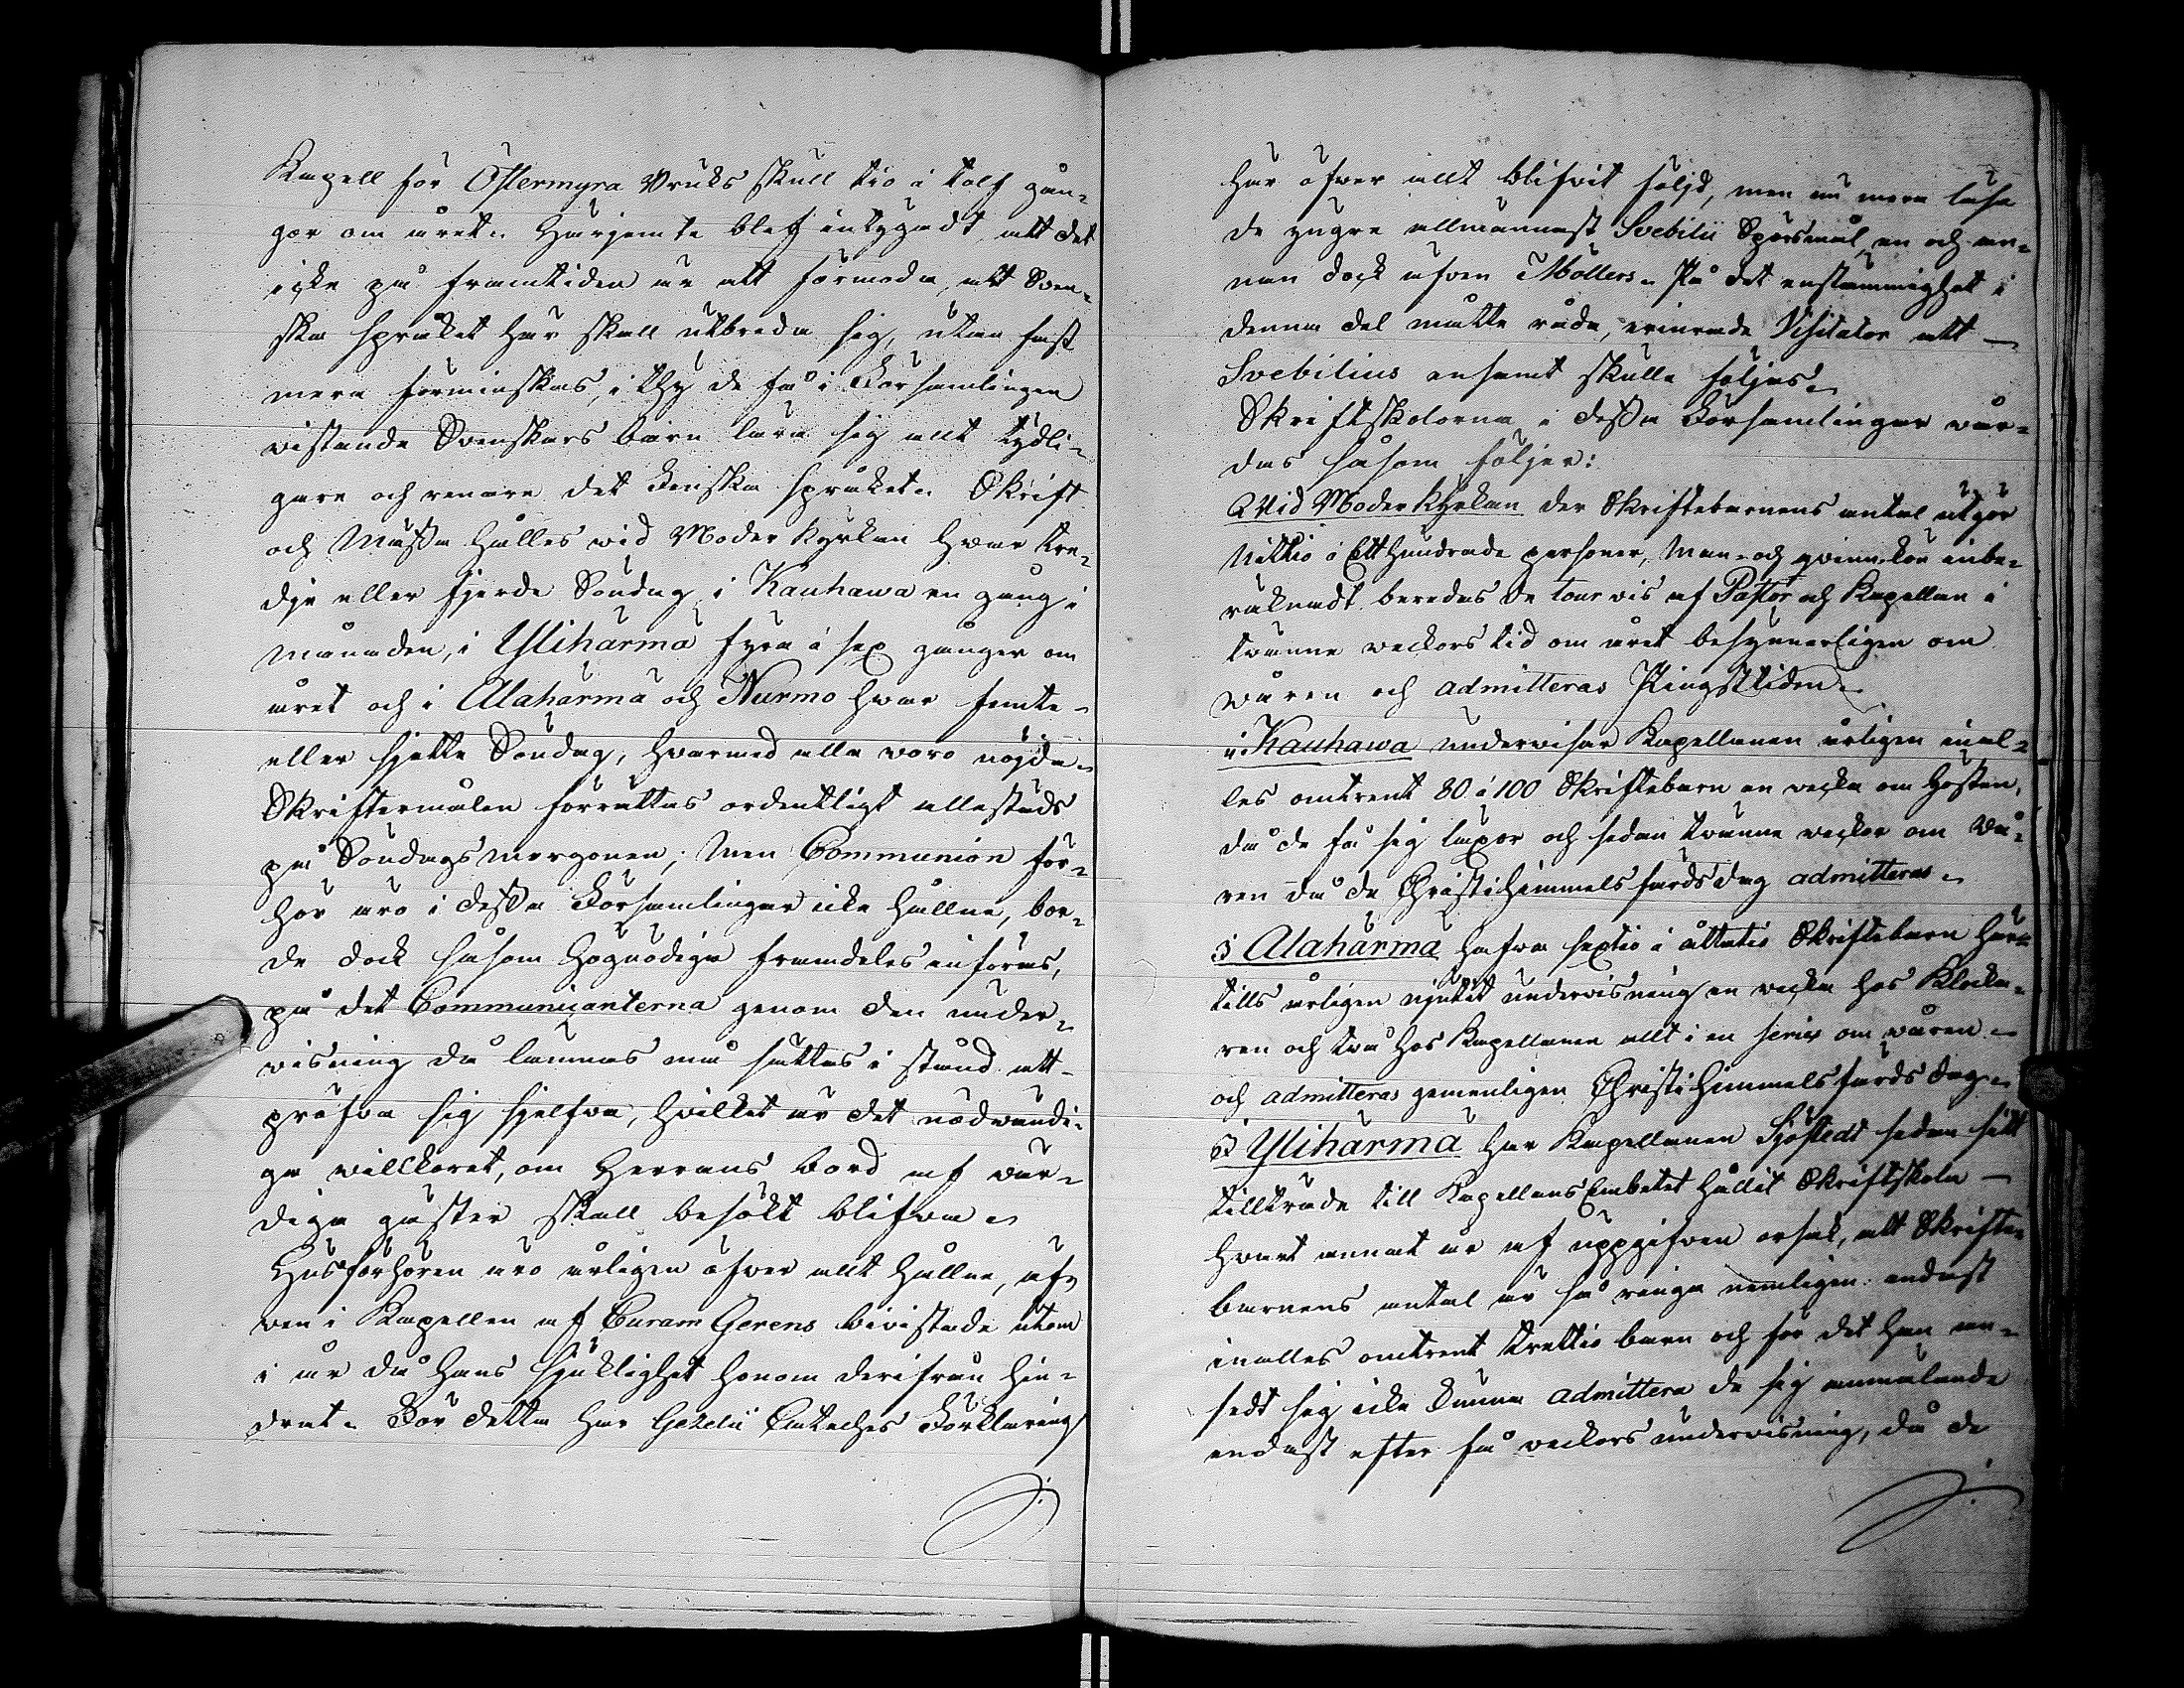 Kapell för Östermyra Bruks skull tio à tolf gån-
gor om året. Härjemte blef intygadt att det
icke på framtiden är att förmoda, att Sven-
ska språket här skall utbreda sig, utan fast
mera förminskas, i thy de få i Församlingen
vistande Svenskars barn lära sig allt tydli-
gare och renare det Finska språket. Skrift
och Mässa hålles vid Moderkyrkan hvar tre-
dje eller fjerde Söndag, i Kauhawa en gång i
månaden, i Ylihärmä fyra à sex gånger om
året och i Alahärmä och Nurmo hvar femte
eller sjette Söndag, hvarmed alla voro nöjda.
Skriftermålen förrättas ordentligt allestäds
på Söndagsmorgonen; Men Communion för-
hör äro i dessa Församlingar icke hållne, bor-
de dock såsom högnödige framdeles införas,
på det Communicanterna genom den under-
visning då lämnas må sättas i stånd att
pröfva sig sjelfva, hvilket är det nödvändi-
ga villkoret, om Herrans bord af vär-
diga gäster skall besökt blifva.
Husförhören äro årligen öfver allt hållne, äf-
ven i Kapellen af Curam Gerens bivistade utom
i år då hans sjuklighet honom derifrån hin-
drat. För detta har Gezelii Cateches Förklaring
här öfver allt blifvit följd, men nu mera läsa
de yngre allmännast Svebilii Spörsmål, en och an-
nan dock äfven Möllers. På det enstämmighet i
denna del måtte råda, erinrade Visitator att
Svebilius ensamt skulle följas.
Skriftskolorna i dessa Församlingar vår-
das såsom följer:
Vid Moderkyrkan der Skriftebarnens antal utgör
Nittio à Etthundrade personer, Man- och qvinnkön inbe-
räknadt beredas de tourvis af Pastor och Kapellan i
tvänne veckors tid om året besynnerligen om
våren och admitteras Pingsttiden.
i Kauhawa undervisar Kapellanen årligen inal-
les omtrent 80 à 100 Skriftebarn en vecka om hösten,
då de få sig läxor och sedan tvänne veckor om vå-
ren då de Christi himmelsfärdsdag admitteras.
i Alahärmä hafva sextio à åttatio Skriftebarn här-
tills årligen njutit undervisning en vecka hos Klocka-
ren och två hos Kapellanen allt i en serie om våren
och admitteras gemenligen Christi himmelsfärdsdag.
i Ylihärmä har Kapellanen Sjöstedt sedan sitt
tillträde till KapellansEmbetet hållit Skriftskola
hvart annat år af uppgifven orsak, att Skrifte-
barnens antal är så ringa nemligen endast
inalles omtrent trettio barn och för det han an-
sedt sig icke kunna admittera de sig anmälande
endast efter få veckors undervisning, då de